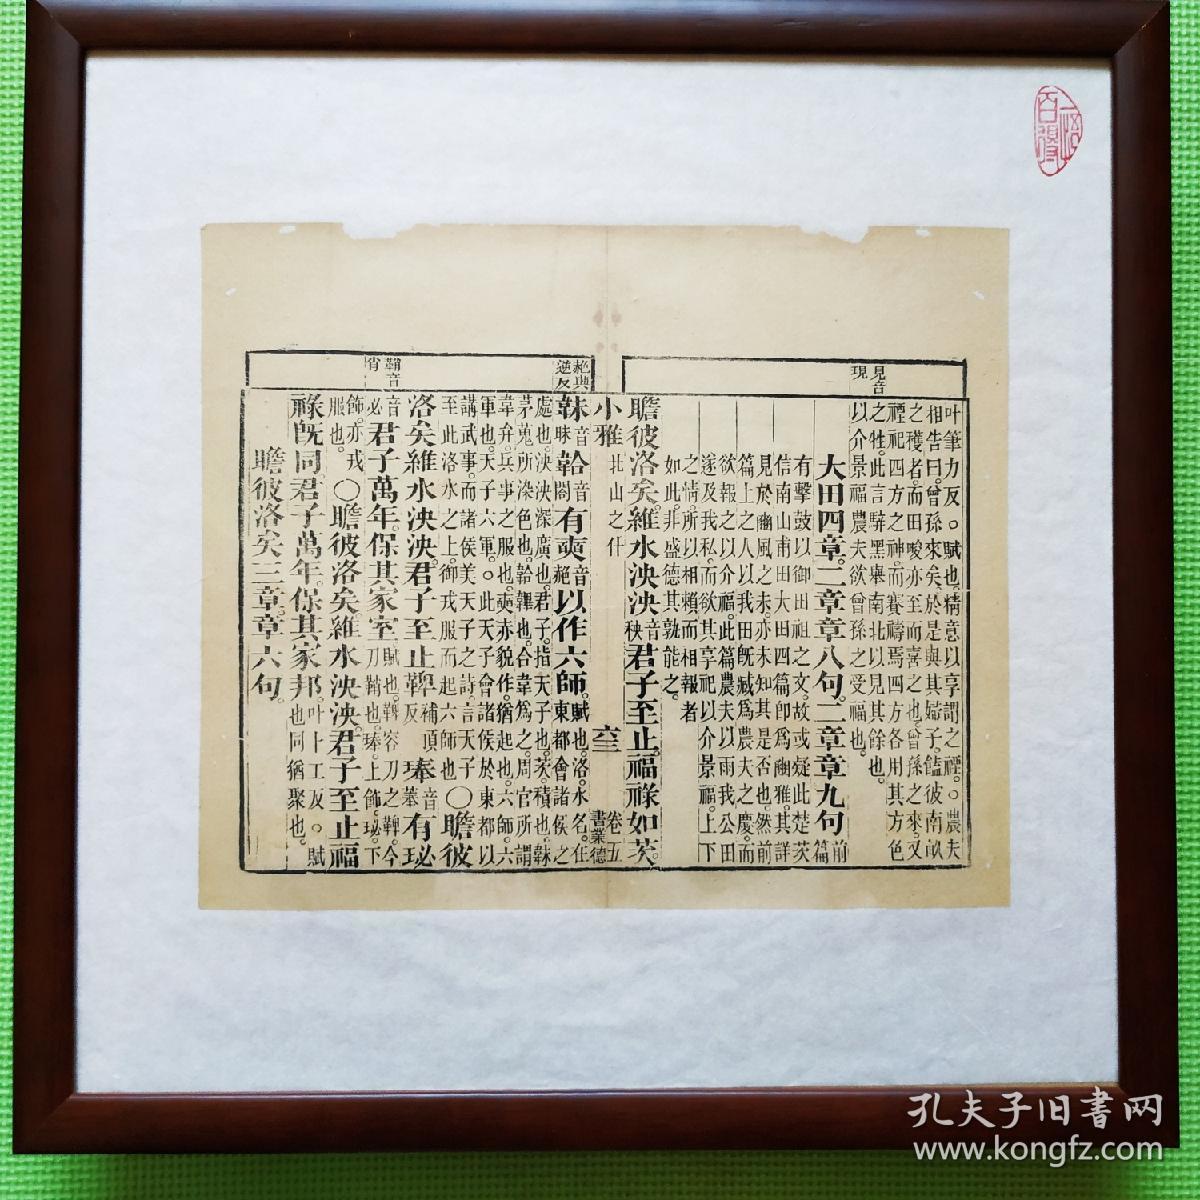 見音
現
叶筆力反。○賦也。精意以享謂之禋。○農夫
相告曰。曾孫來矣。於是與其婦子。饁彼南畝
之穫者。而田畯亦至而喜之也。曾孫之來。又
禋祀四方之神。而賽禱焉。四方各用其方色
之牲。此言騂黑。舉南北以見其餘也。
以介景福。農夫欲曾孫之受福也。
大田四章。二章章八句。二章章九句。前篇
有擊鼓以御田祖之文。故或疑此楚茨
信南山甫田大田四篇。卽爲豳雅。其詳
見於豳風之末。亦未知其是否也。然前
篇上之人。以我田旣臧。爲農夫之慶。而
欲報之以介福。此篇農夫以雨我公田。
遂及我私。而欲其享祀以介景福。上下
之情。所以相賴而相報者
如此。非盛德其孰能之。
瞻彼洛矣。維水泱泱。音秧君子至止。福祿如茨。
小雅 北山之什 卷五 書業德
赩與
迄反
韎音昧韐音閤有奭。音赩以作六師。賦也。洛。水名。在東都。會諸侯之
處也。泱泱。深廣也。君子。指天子也。茨。積也。韎。
茅蒐所染色也。韐。韠也。合韋爲之。周官所謂
韋弁。兵事之服也。奭。赤貌。作。猶起也。六師。六
軍也。天子六軍。○此天子會諸侯於東都。以
講武事。而諸侯美天子之詩。言天子
至此洛水之上。御戎服而起六師也。○瞻彼
洛矣。維水泱泱。君子至止。鞞補頂反琫音菶有珌
鞘音
肖
音必君子萬年。保其家室。賦也。鞞。容刀之鞞。今刀鞘也。琫。上飾。珌。下
飾。亦戎服也。○瞻彼洛矣。維水泱泱。君子至止。福
祿旣同。君子萬年。保其家邦。叶卜工反。○賦也。同。猶聚也。
瞻彼洛矣三章。章六句。
孔夫子旧書网
www.kongfz.com